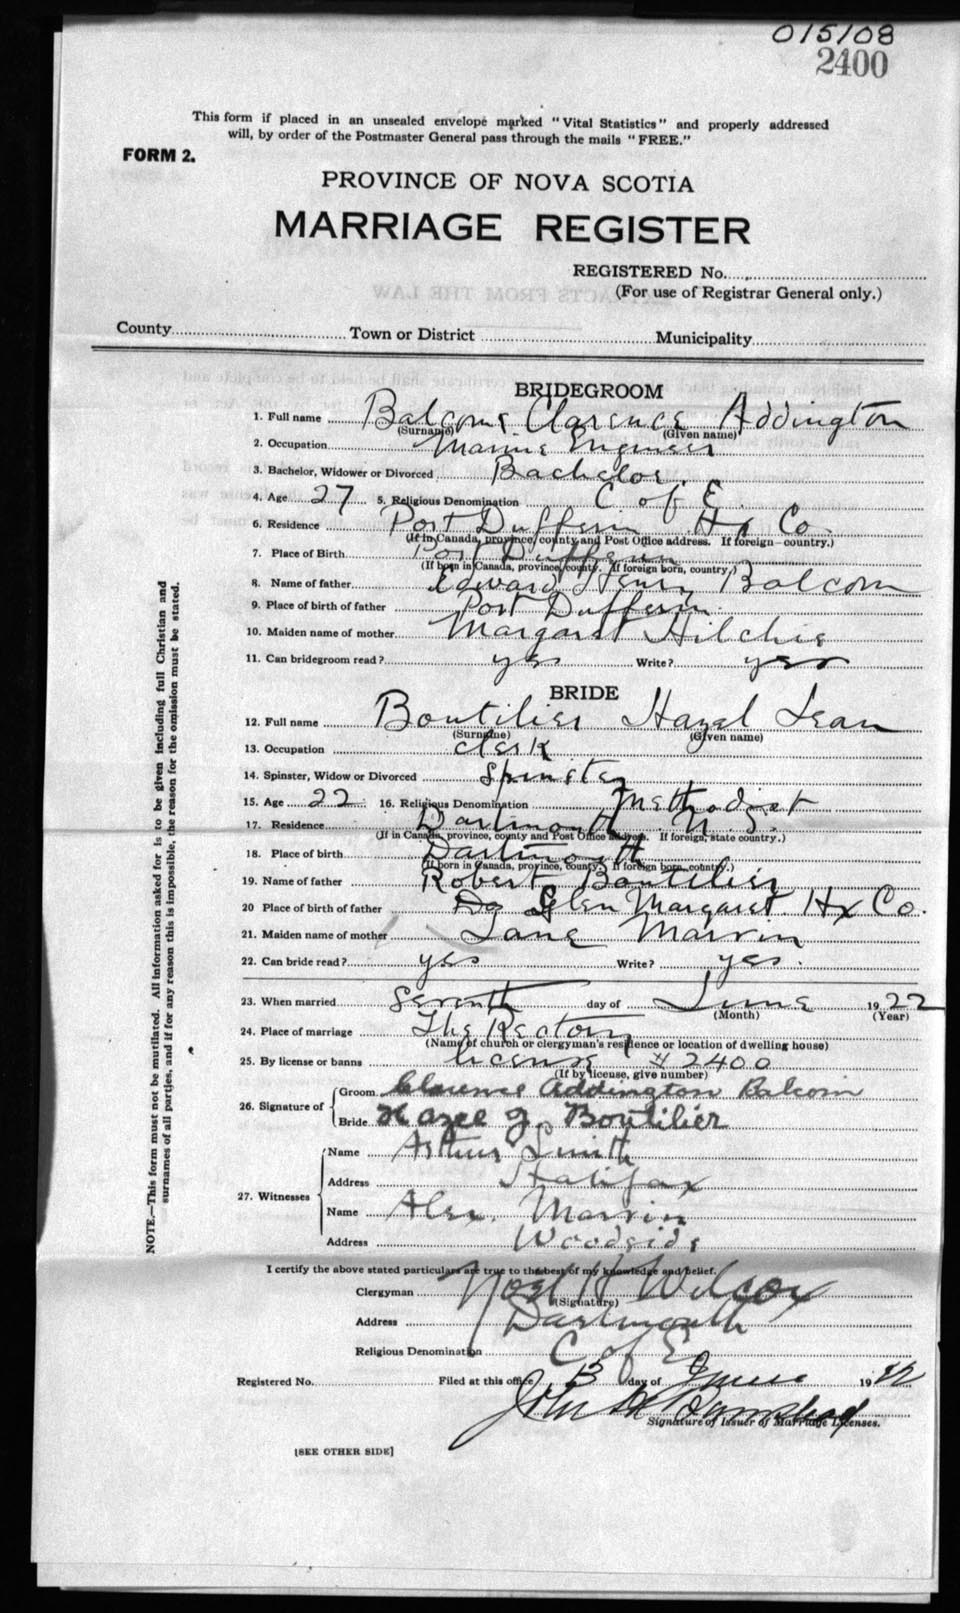 015108
2400
This form if placed in an unsealed envelope marked "Vital Statistics" and properly addressed
will, by order of the Postmaster General pass through the mails "FREE."
FORM 2.
PROVINCE OF NOVA SCOTIA
MARRIAGE REGISTER
REGISTERED No.
(For use of Registrar General only.)
County Town or District Municipality
BRIDEGROOM
1. Full name Balcome Clarence Addington
(Surname) (Given name)
2. Occupation Marine Engineer
3. Bachelor, Widower or Divorced Bachelor.
4. Age 27 5. Religious Denomination C of E.
6. Residence Port Dufferin Hx Co.
(If in Canada, province, county and Post Office address. If foreign—country.)
7. Place of Birth Port Dufferin
(If born in Canada, province, county. If foreign born, country.)
8. Name of father Edward Henry Balcom
9. Place of birth of father Port Dufferin.
10. Maiden name of mother Margaret Hilchie
11. Can bridegroom read? yes Write? yes
BRIDE
12. Full name Boutilier Hazel Jean
(Surname) (Given name)
13. Occupation clerk
14. Spinster, Widow or Divorced Spinster
15. Age 22 16. Religious Denomination Methodist
17. Residence Dartmouth N.S.
(If in Canada, province, county and Post Office address. If foreign, state country.)
18. Place of birth Dartmouth
(If born in Canada, province, county. If foreign born, country.)
19. Name of father Robert Boutilier
20 Place of birth of father Do Glen Margaret Hx Co.
21. Maiden name of mother Jane Marvin
22. Can bride read? yes Write? yes.
23. When married Seventh day of June 1922
(Month) (Year)
24. Place of marriage The Rectory
(Name of church or clergyman's residence or location of dwelling house)
25. By license or banns license # 2400
(If by license, give number)
26. Signature of Groom Clarence Addington Balcom
Bride Hazel J. Boutilier
27. Witnesses Name Arthur Smith
Address Halifax
Name Alex. Marvin
Address Woodside
I certify the above stated particulars are true to the best of my knowledge and belief.
Clergyman Noel H Wilcox
(Signature)
Address Dartmouth
Religious Denomination C of E
Registered No. Filed at this office 13 day of June 1922
John
Signature of Issuer of Marriage Licenses.
[SEE OTHER SIDE]
NOTE.—This form must not be mutilated. All information asked for is to be given including full Christian and
surnames of all parties, and if for any reason this is impossible, the reason for the omission must be stated.